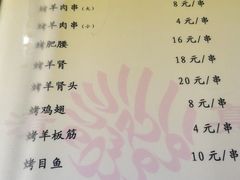 烤羊肉串(大) 8元/串
烤羊肉串(小) 4元/串
烤肥腰 16元/串
烤羊肾 18元/串
烤羊肾头 20元/串
烤鸡翅 8元/串
烤羊板筋 4元/串
烤目鱼 10元/串